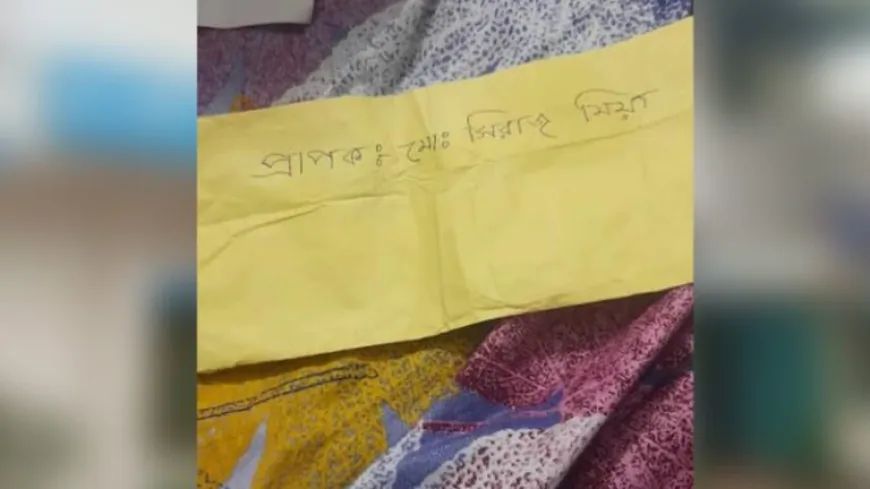 প্রাপক: মো: সিরাজ মিয়া